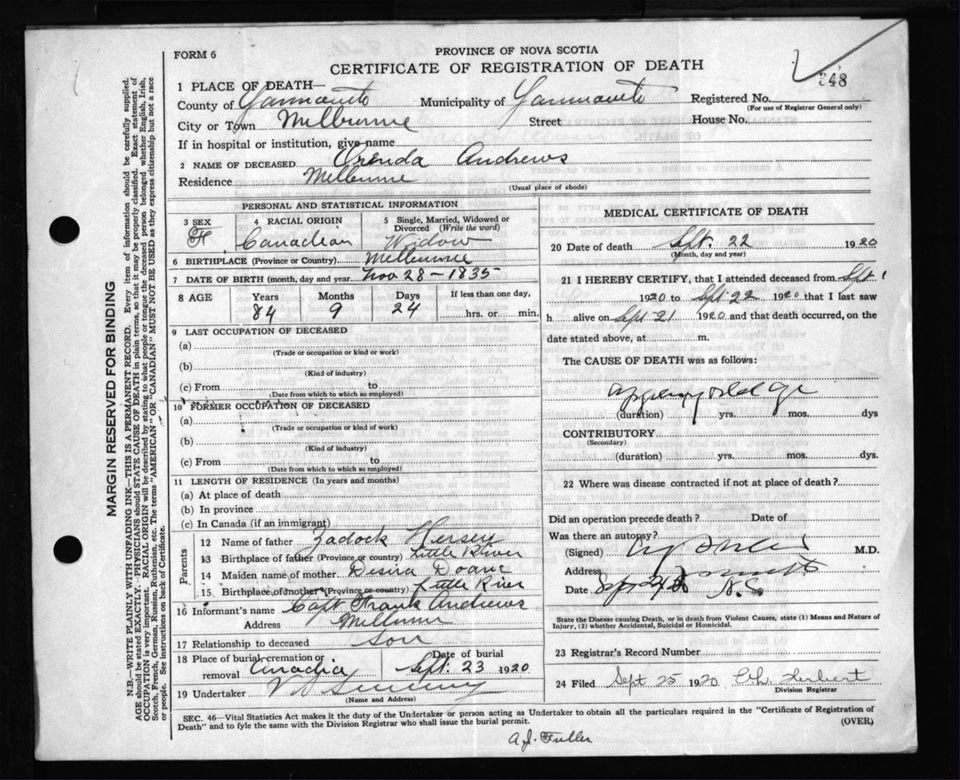 FORM 6
PROVINCE OF NOVA SCOTIA
CERTIFICATE OF REGISTRATION OF DEATH
348
1 PLACE OF DEATH—
County of Yarmouth Municipality of Yarmouth Registered No.
(For use of Registrar General only)
City or Town Melbourne Street House No.
If in hospital or institution, give name
2 NAME OF DECEASED Orenda Andrews
Residence Melbourne
(Usual place of abode)
PERSONAL AND STATISTICAL INFORMATION
3 SEX F 4 RACIAL ORIGIN Canadian 5 Single, Married, Widowed or Divorced (Write the word) Widow
6 BIRTHPLACE (Province or Country) Melbourne
7 DATE OF BIRTH (month, day and year) Nov 28 - 1835
8 AGE Years 84 Months 9 Days 24 If less than one day, hrs. or min.
9 LAST OCCUPATION OF DECEASED
(a)
(Trade or occupation or kind or work)
(b)
(Kind of industry)
(c) From to
(Date from which to which so employed)
10 FORMER OCCUPATION OF DECEASED
(a)
(Trade or occupation or kind of work)
(b)
(Kind of industry)
(c) From to
(Date from which to which so employed)
11 LENGTH OF RESIDENCE (In years and months)
(a) At place of death
(b) In province
(c) In Canada (if an immigrant)
Parents
12 Name of father Zadock Hersey
13 Birthplace of father (Province or country) Little River
14 Maiden name of mother Desira Doane
15 Birthplace of mother (Province or country) Little River
16 Informant's name Capt Frank Andrews
Address Melbourne
17 Relationship to deceased Son
18 Place of burial, cremation or removal Arcadia Date of burial Sept. 23 1920
19 Undertaker
(Name and Address)
MEDICAL CERTIFICATE OF DEATH
20 Date of death Sept. 22 1920
(Month, day and year)
21 I HEREBY CERTIFY, that I attended deceased from Sept 1
1920 to Sept 22 1920 that I last saw
h alive on Sept 21 1920 and that death occurred, on the
date stated above, at m.
The CAUSE OF DEATH was as follows:
old age
(duration) yrs. mos. dys
CONTRIBUTORY
(Secondary)
(duration) yrs. mos. dys.
22 Where was disease contracted if not at place of death?
Did an operation precede death? Date of
Was there an autopsy?
(Signed) M.D.
Address Yarmouth
Date N.S.
State the Disease causing Death, or in death from Violent Causes, state (1) Means and Nature of
Injury, (2) whether Accidental, Suicidal or Homicidal.
23 Registrar's Record Number
24 Filed Sept 25 1920 Herbert
Division Registrar
SEC. 46—Vital Statistics Act makes it the duty of the Undertaker or person acting as Undertaker to obtain all the particulars required in the "Certificate of Registration of
Death" and to fyle the same with the Division Registrar who shall issue the burial permit.
(OVER)
A.J. Fuller
MARGIN RESERVED FOR BINDING
N.B.—WRITE PLAINLY WITH UNFADING INK—THIS IS A PERMANENT RECORD. Every item of information should be carefully supplied.
AGE should be stated EXACTLY. PHYSICIANS should STATE CAUSE OF DEATH in plain terms, so that it may be properly classified. Exact statement of
OCCUPATION is very important. RACIAL ORIGIN will be described by stating to what people or tongue the deceased person belonged whether English, Irish,
Scotch, French, German, Russian, Ruthenian, etc. The terms "AMERICAN" OR "CANADIAN" MUST NOT BE USED as they express citizenship but not a race
or people. See instructions on back of Certificate.